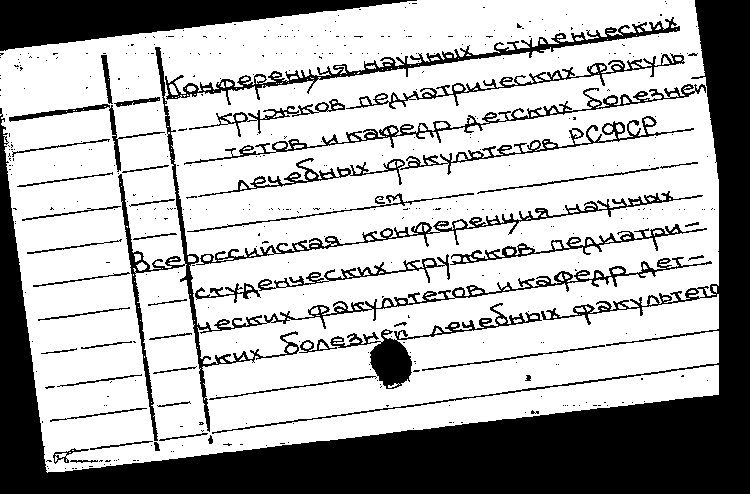 Конференция научных студенческих
кружков педиатрических факуль-
тетов и кафедр детских болезней
лечебных факультетов РСФСР
см.
Всероссийская конференция научных
студенческих кружков педиатри-
ческих факультетов и кафедр дет-
ских болезней лечебных факультето